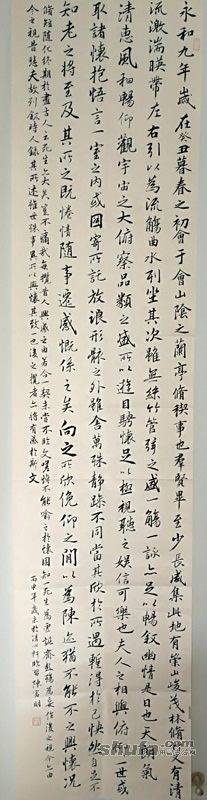 永和九年歲在癸丑暮春之初會于會山陰之蘭亭脩禊事也羣賢畢至少長咸集此地有崇山峻茂林脩竹又有清
流激湍暎帶左右引以為流觴曲水列坐其次雖無絲竹管弦之盛一觴一詠亦足以暢敘幽情是日也天朗氣
清惠風和暢仰觀宇宙之大俯察品類之盛所以遊目騁懷足以極視聽之娛信可樂也夫人之相與俯仰一世或
取諸懷抱悟言一室之內或因寄所託放浪形骸之外雖舍萬殊靜躁不同當其欣於所遇暫得於己快然自足不
知老之將至及其所之既惓情隨事遷感慨係之矣向之所欣俛仰之間以為陳迹猶不能不以之興懷況
脩短隨化終期於盡古人云死生亦大矣豈不痛哉每攬昔人興感之由若合一契未嘗不臨文嗟悼不能喻之於懷固知一死生為虛誕齊彭殤為妄作後之視今亦由
今之視昔悲夫故列敘時人錄其所述雖世殊事異所以興懷其致一也後之攬者亦將有感於斯文
丙申年歲末於清心軒